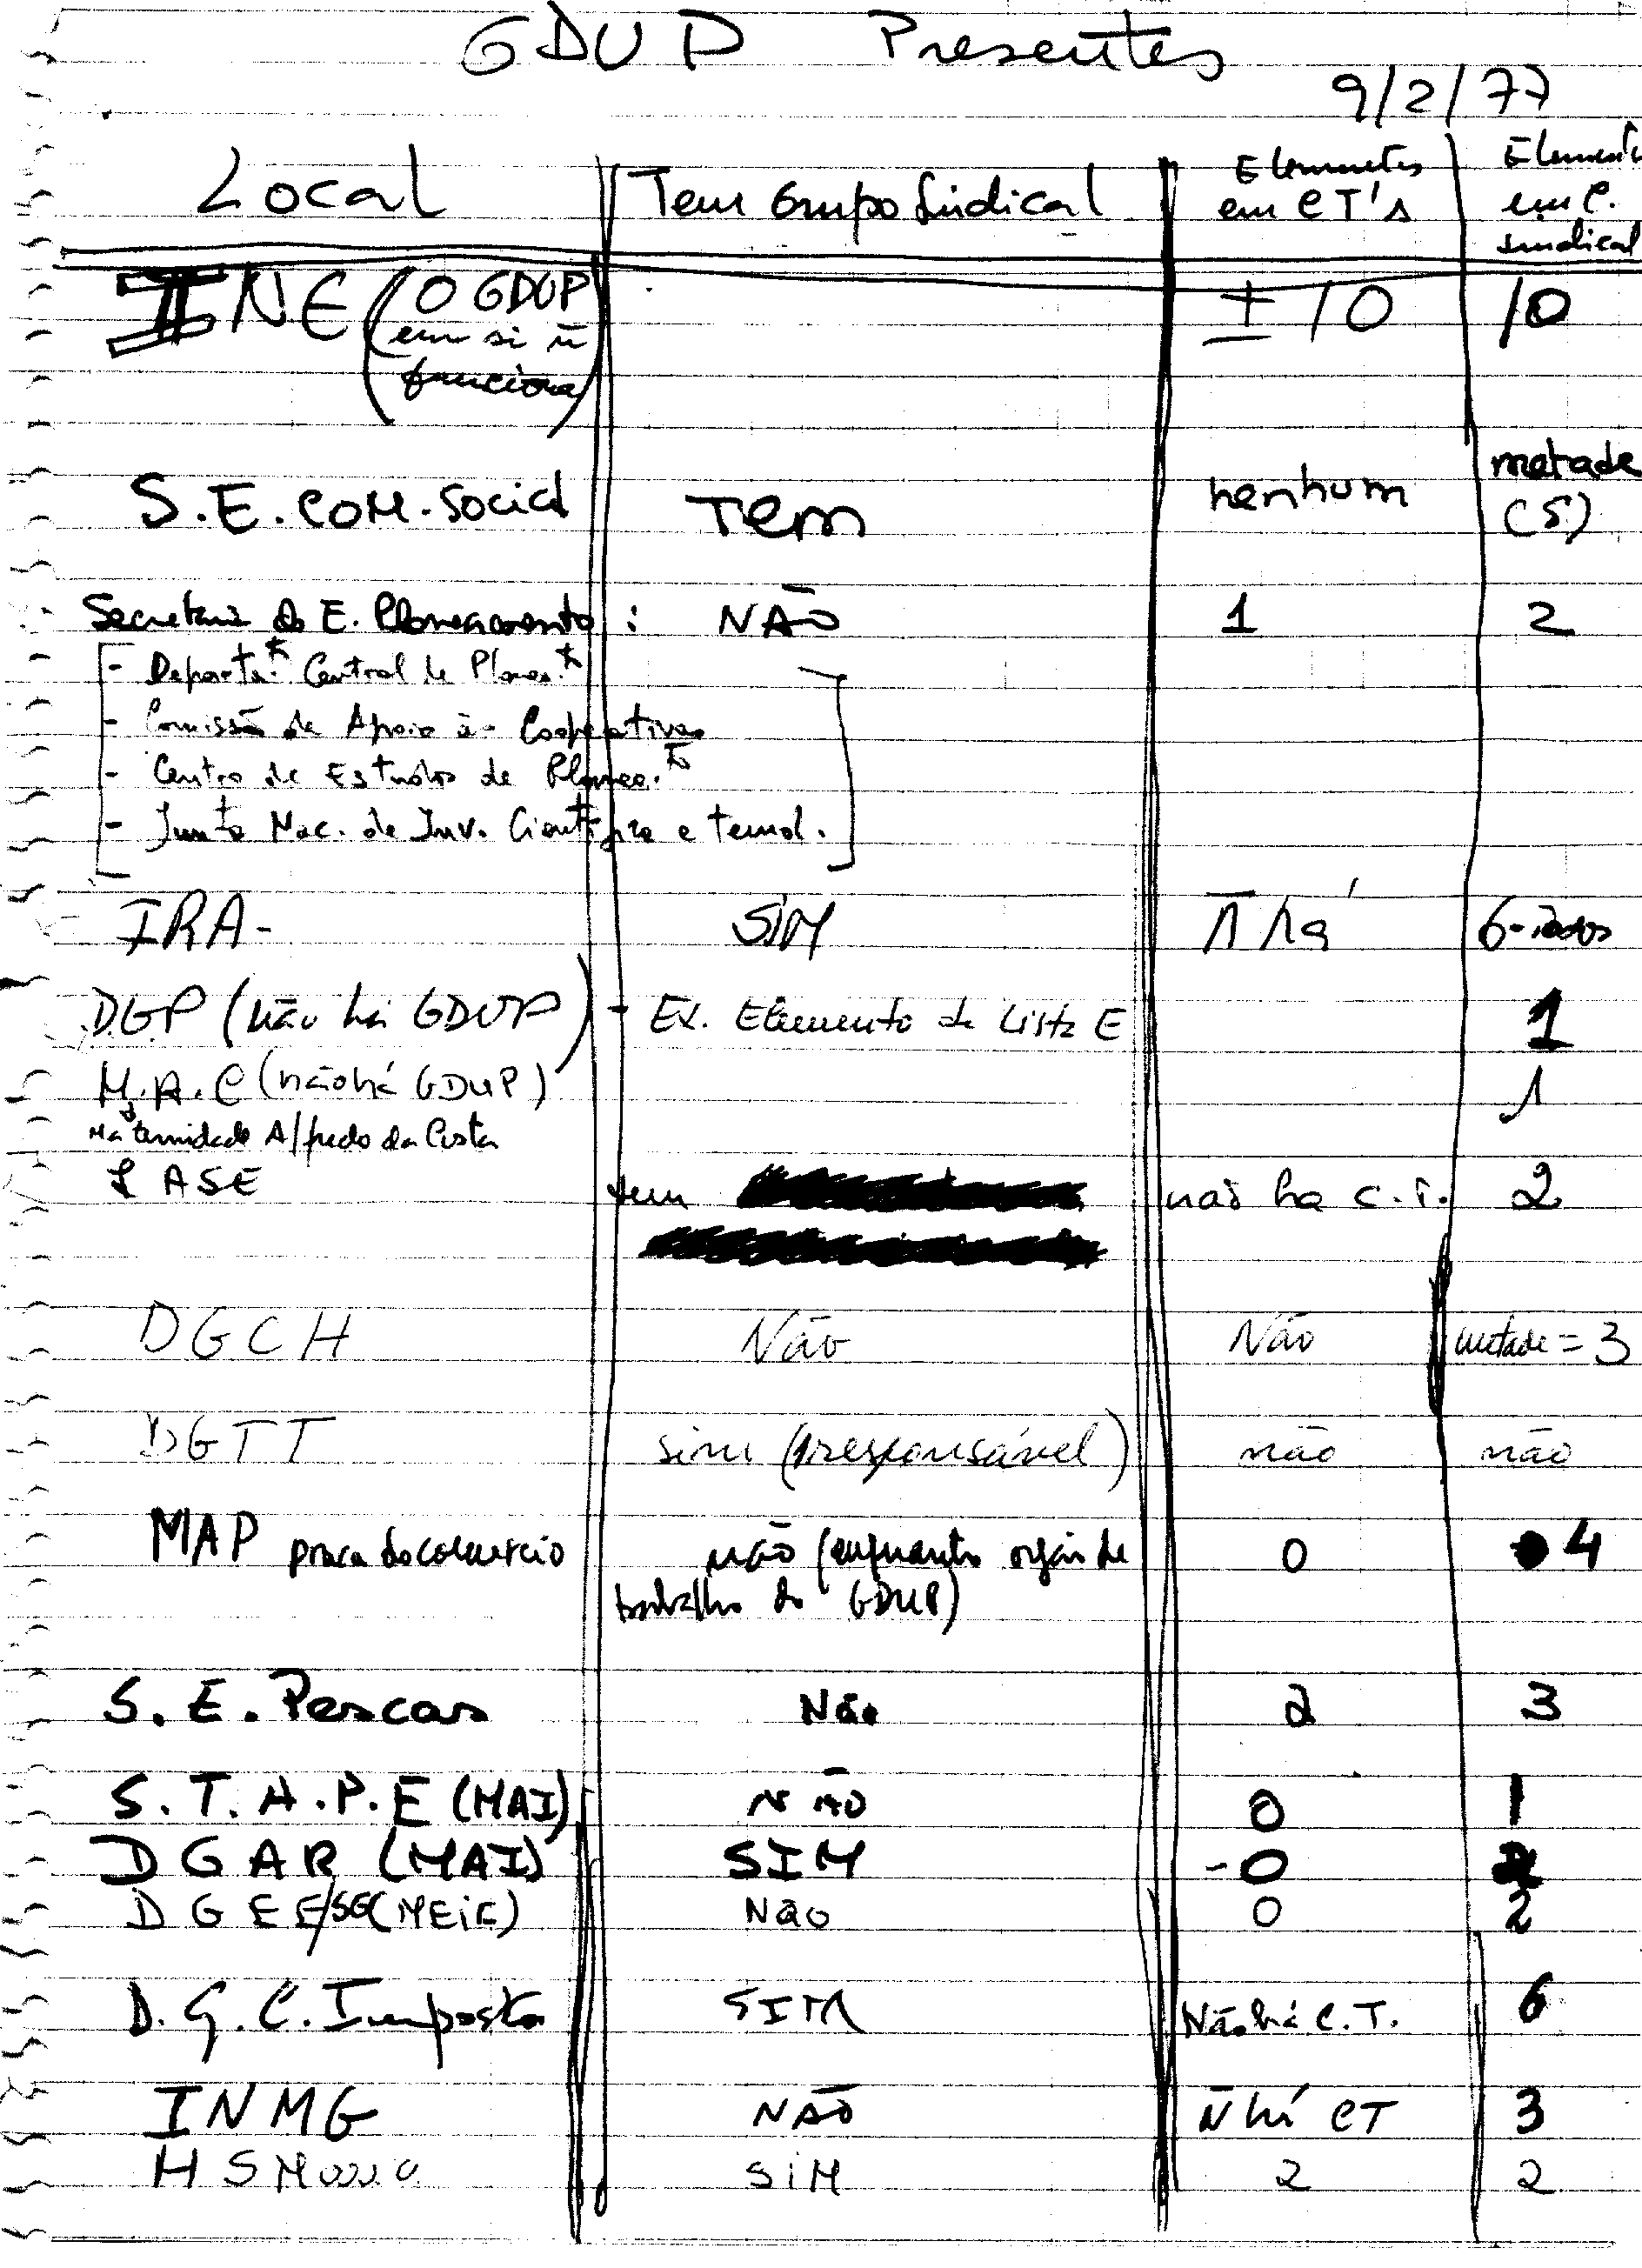 GDUP Presentes
9/2/77
Local Tem Grupo Sindical Elementos em CT's Elementos em C. sindical
INE (O GDUP ± 10 10
em si ñ
funciona)
S.E. COM. Social Tem nenhum metade (5)
Secretaria de E. Planeamento : NÃO 1 2
- Departa.to Central de Planea.to
- Comissão de Apoio às Cooperativas
- Centro de Estudos de Planea.to
- Junta Nac. de Inv. Científica e tecnol.
IRA - SIM ñ há 6 - todos
DGP (não há GDUP) - Ex. Elemento da Lista E 1
M.A.C (não há GDUP) 1
Maternidade Alfredo da Costa
IASE tem não ha C.T. 2
DGCH Não Não metade = 3
DGTT sim (1 responsável) não não
MAP praca do comercio não (enquanto orgão de 0 4
trabalho do GDUP)
S. E. Pescas Não 2 3
S.T.A.P.E (MAI) NÃO 0 1
DGAR (MAI) SIM - 0
DGEE/SG (MEIC) Não 0 2
D.G.C. Impostos SIM Não há C.T. 6
INMG NÃO Ñ há CT 3
HSMaria SiM 2 2